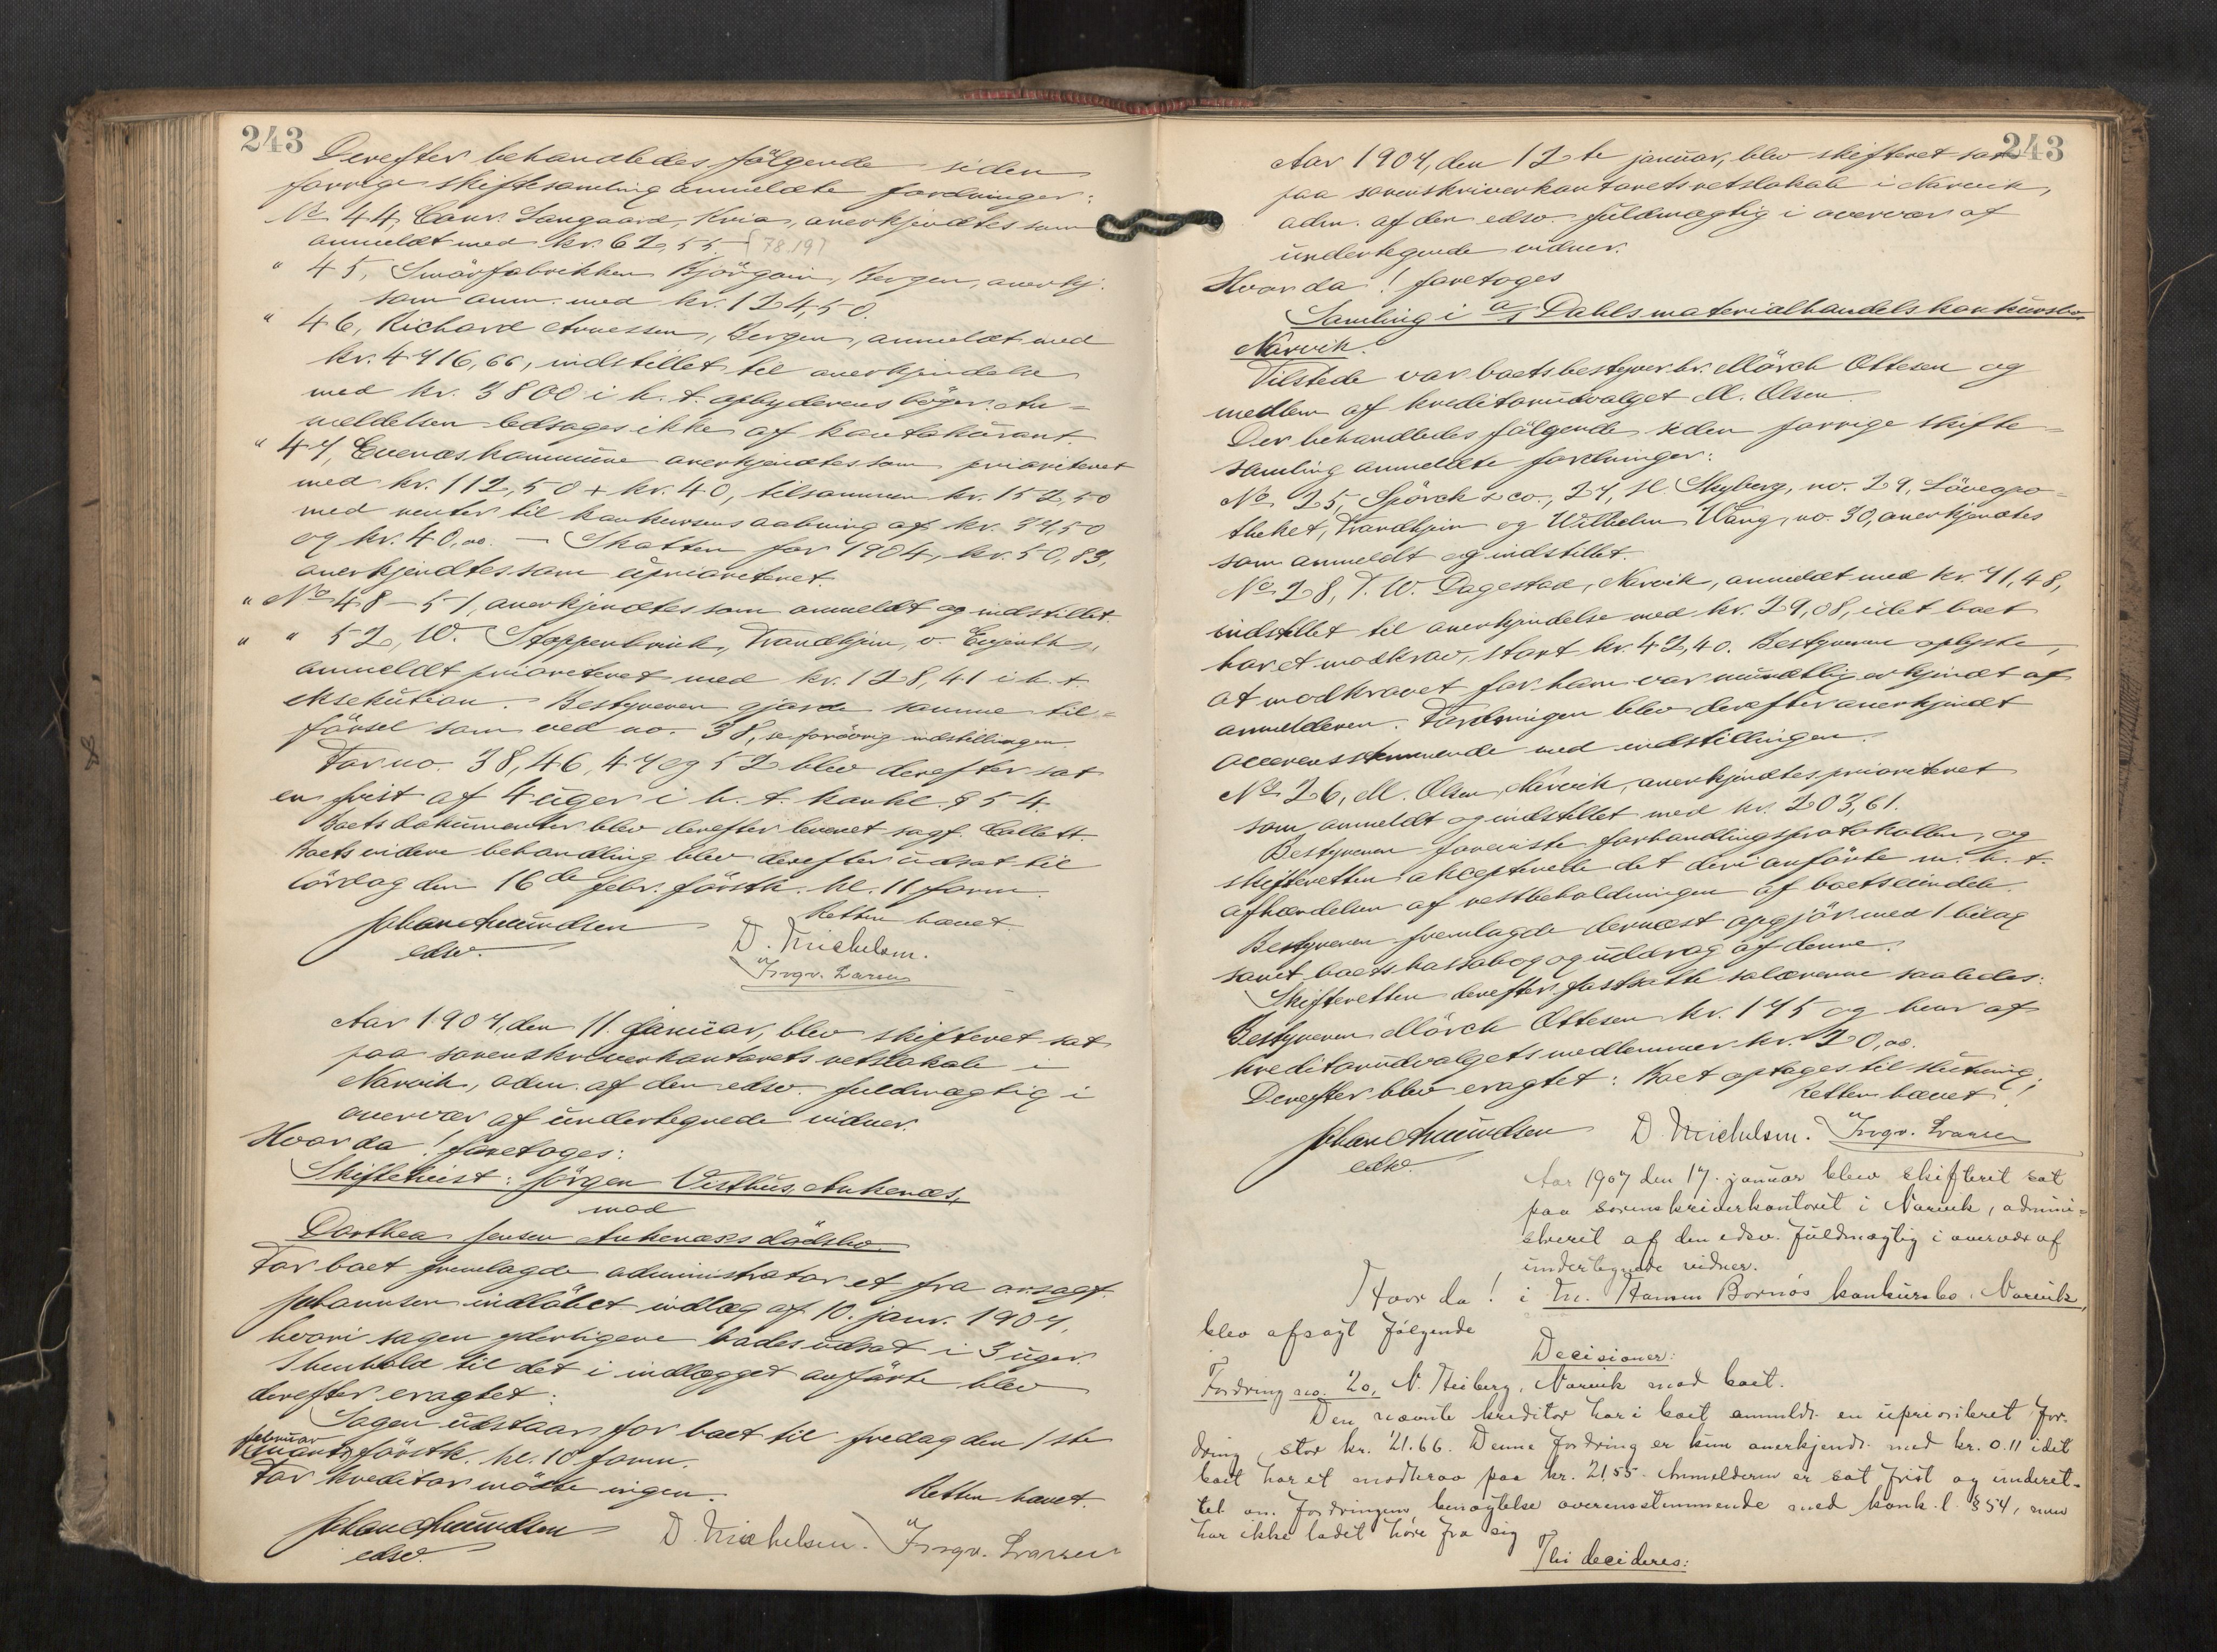 243
Derefter behandledes følgende siden
forrige skiftesamling anmeldte fordringer:
No 44, Conr. Langaard, Kria, anerkjendtes som
anmeldt med kr. 62,55 [78.19]
" 45, Smørfabrikken Bjørgvin, Bergen, anerkj.
som anm. med kr. 124,50.
" 46, Richard Arnessen, Bergen, anmeldt med
kr. 4716,66, indstillet til anerkjendelse
med kr. 3800 i h. t. opbyderens bøger. An=
meldelsen ledsages ikke af kontokurant.
" 47, Evenæs kommune anerkjendtes som prioriteret
med kr. 112,50 + kr. 40, tilsammen kr. 152,50
med renter til konkursens aabning af kr. 34,50
og kr. 40,00. — Skatten for 1904, kr. 50,83,
anerkjendtes som uprioriteret.
" No 48 – 51, anerkjendtes som anmeldt og indstillet.
" " 52, W. Stoppenbrink, Trondhjem, v.
anmeldt prioriteret med kr. 128,41 i h. t.
eksekution. Bestyreren gjorde samme til=
førsel som ved no. 38, forøvrig indstillingen.
For no. 38, 46, 47 og 52 blev derefter sat
en frist af 4 uger i h. t. konkl. § 54.
Boets dokumenter blev derefter leveret sagf. Collett.
Boets videre behandling blev derefter udsat til
lørdag den 16de febr. førstk. kl. 11 form.
Retten hævet.
Johan Amundsen
edsv.
D. Michelsen.
Ingv. Larsen
Aar 1907, den 11. januar, blev skifteret sat
paa sorenskriverkontorets retslokale i
Narvik, adm. af den edsv. fuldmægtig i
overvær af undertegnede vidner.
Hvor da! foretoges:
Skiftetvist: Jørgen Visthus, Ankenæs,
mod
Dorthea Jensen Ankenæs's dødsbo.
For boet fremlagde administrator et fra o.r.sagf.
Johannsen indløbet indlæg af 10. janr. 1907,
hvori sagen yderligere bades udsat i 3 uger.
I henhold til det i indlægget anførte blev
derefter eragtet:
Sagen udstaar for boet til fredag den 1ste
februar
førstk. kl. 10 form.
For kreditor mødte ingen.
Retten hævet.
Johan Amundsen
edsv.
D. Michelsen. Ingv. Larsen
243
Aar 1907, den 12te januar, blev skifteret sat
paa sorenskriverkontorets retslokale i Narvik,
adm. af den edsv. fuldmægtig i overvær af
undertegnede vidner.
Hvor da! foretoges
Samling i a/s Dahls materialhandels konkursbo
Narvik.
Tilstede var boets bestyrer hr. Mørch Ottesen og
medlem af kreditorudvalget M. Olsen.
Der behandledes følgende siden forrige skifte=
samling anmeldte fordringer:
No 25, Spørck & co., 27, H. Skyberg, no. 29, Løveapo=
theket, Trondhjem og Wilhelm Wang, no. 30, anerkjendtes
som anmeldt og indstillet.
No 28, T. W. Dagestad, Narvik, anmeldt med kr. 71,48,
indstillet til anerkjendelse med kr. 29,08, idet boet
har et modkrav, stort kr. 42,40. Bestyreren oplyste,
at modkravet for ham var mundtlig erkjendt af
anmelderen. Fordringen blev derefter anerkjendt
overensstemmende med indstillingen.
No 26, M. Olsen, Narvik, anerkjendtes prioriteret
som anmeldt og indstillet med kr. 203,61.
Bestyreren foreviste forhandlingsprotokollen, og
skifteretten akcepterede det deri anførte m. h. t.
afhændelsen af restbeholdningen af boets eiendele.
Bestyreren fremlagde dernæst opgjør med 1 bilag
samt boets kassabog og uddrag af denne.
Skifteretten derefter fastsatte salærerne saaledes:
Bestyreren Mørch Ottesen kr. 175 og hver af
kreditorudvalgets medlemmer kr. 20,00.
Derefter blev eragtet: Boet optages til slutning.
Retten hævet!
Johan Amundsen
edsv.
D. Michelsen. Ingv. Larsen
Aar 1907 den 17. januar blev skifterit sat
paa sorenskriverkontorit i Narvik, admini=
strerit af den edsv. fuldmægtig i overvær af
undertegnede vidner.
Hvor da! i Hansen Bornøs konkursbo, Narvik,
blev afsagt følgende
Decisioner:
Fordring no. 20, N. Heiberg, Narvik mod boet.
Den nævnte kreditor har i boet anmeldt en uprioriteret for-
dring, stor kr. 21.66. Denne fordring er kun anerkjendt med kr. 0.11 idet
boet har et modkrav paa kr. 21,55. Anmelderen er sat frist og underet-
tet om fordringens benægtelse overensstemmende med konk.l. § 54, men
har ikke ladet høre fra sig
Thi decideres: